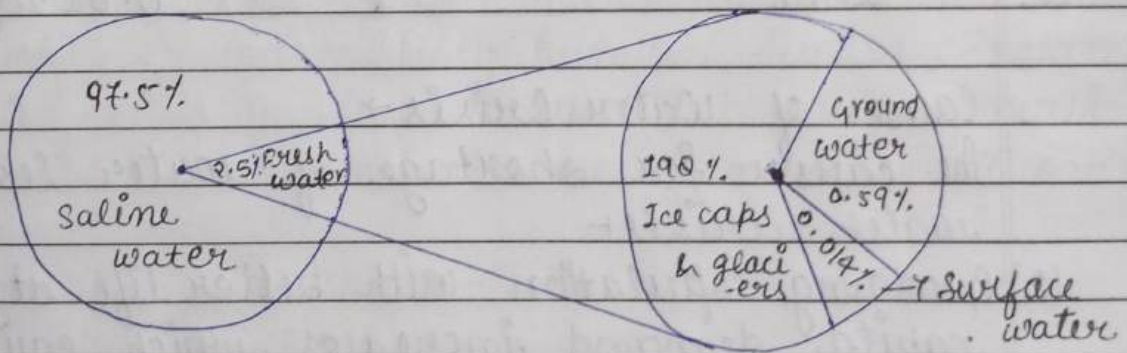 97.5%.
2.5% Fresh
water
Saline
water
Ground
water
0.59%.
190%.
Ice caps
& glaci
-ers
0.014%
→ Surface
water